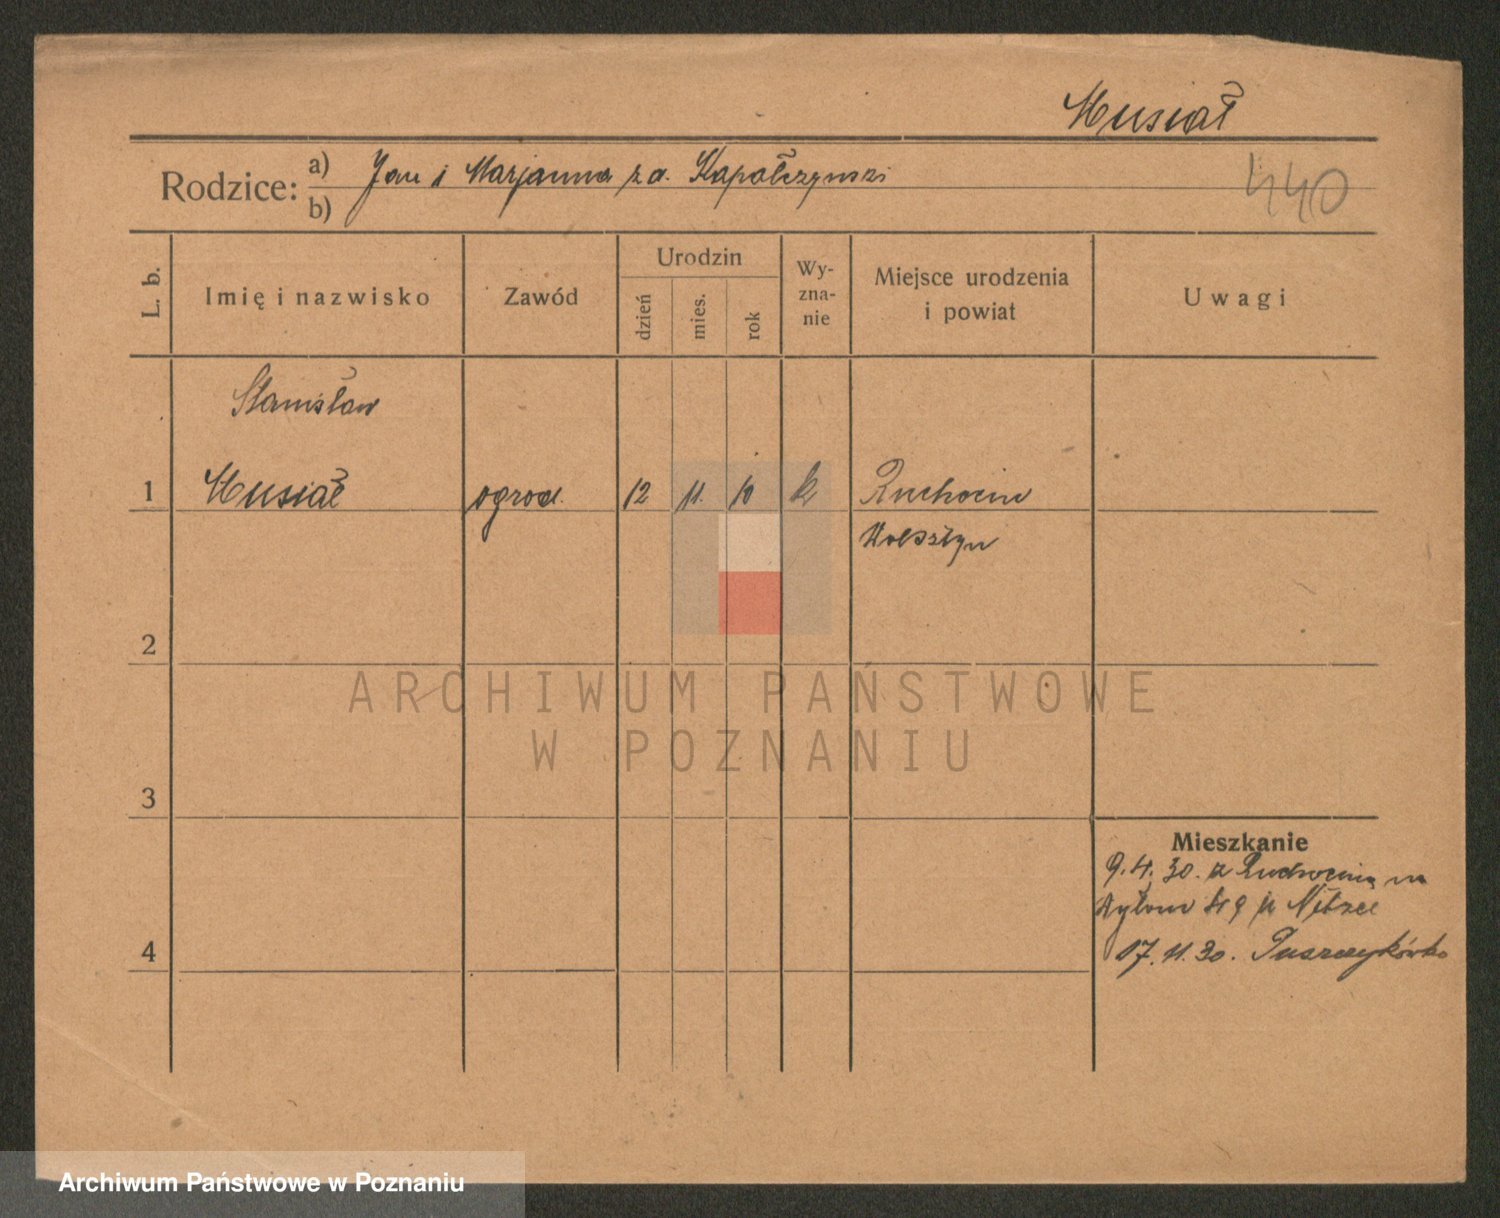 Musiał
Rodzice: a) Jan i Marjanna zd. Kapałczynski
b)
440
L. b.
Imię i nazwisko
Zawód
Urodzin
dzień
mies.
rok
Wy-
zna-
nie
Miejsce urodzenia
i powiat
Uwagi
Stanisław
1 Musiał ogrod. 12 11. 10 k Ruchocin
Wolsztyn
2
ARCHIWUM PAŃSTWOWE
W POZNANIU
3
Mieszkanie
9.4.30. z Ruchocina na
17.11.30. Puszczykówko
4
Archiwum Państwowe w Poznaniu